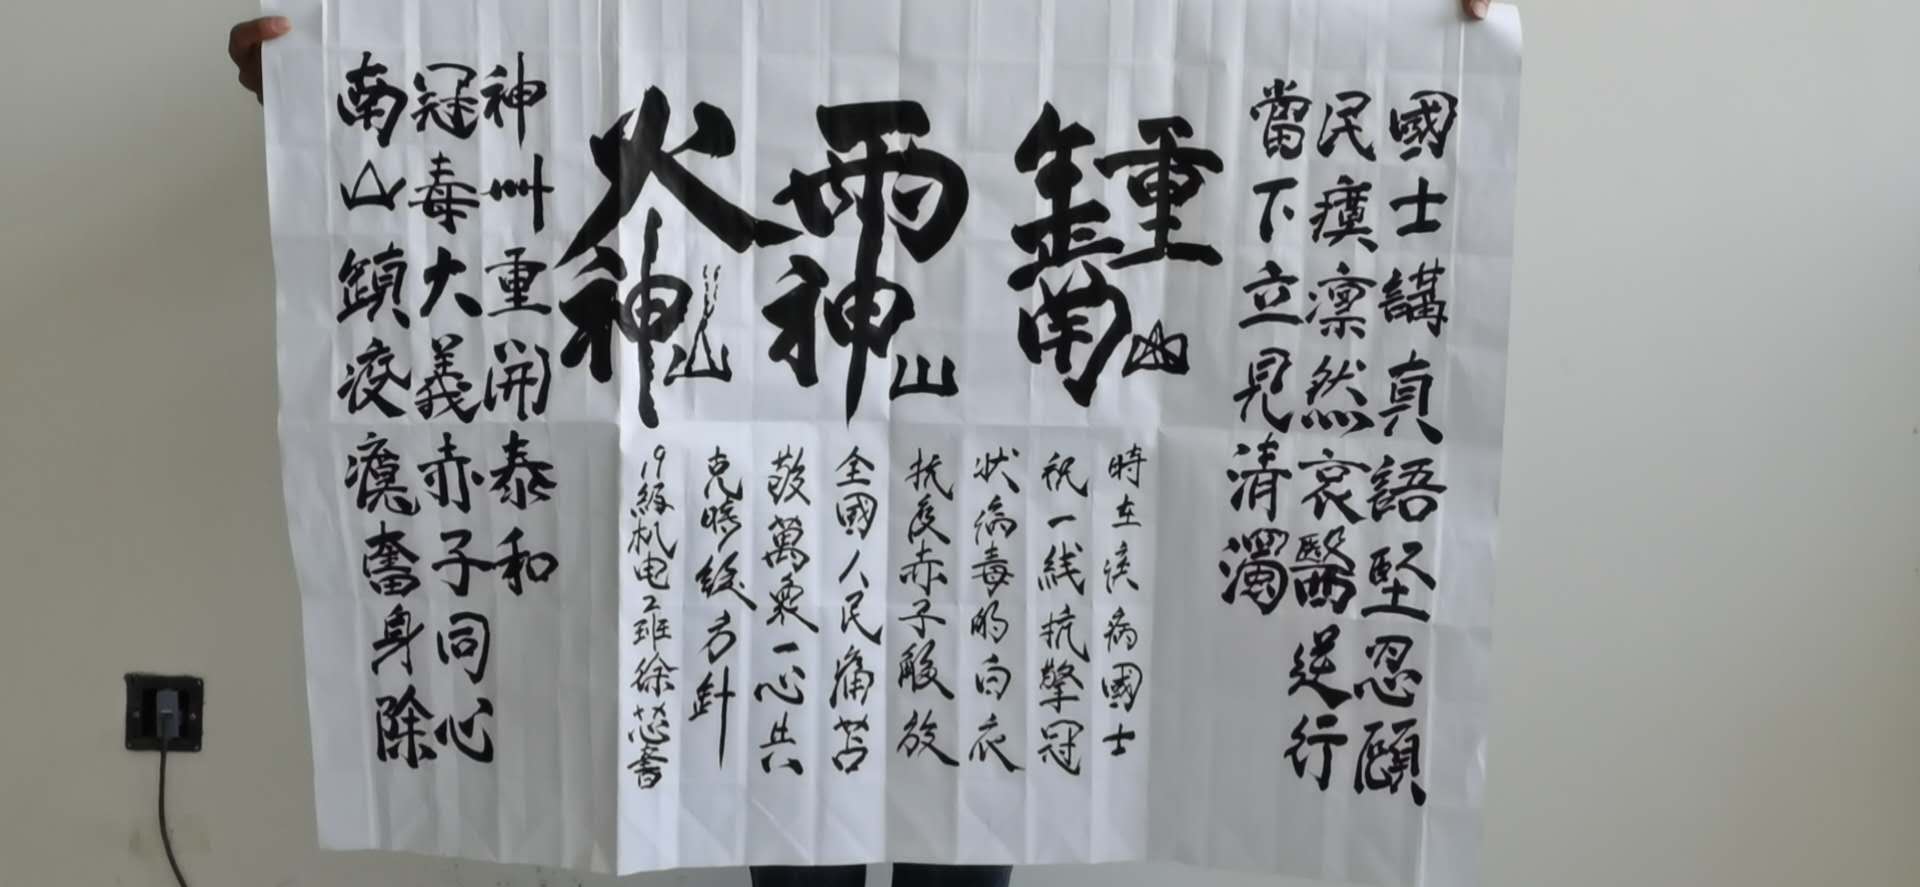 國士講真語堅忍頤
民瘼凛然哀醫逆行
當下立見清濁
鍾南山
雨神山
火神山
時在疾病國士
祝一线抗擊冠
状病毒的白衣
抗疫赤子般效
全國人民痛苦
散萬衆一心共
克時方針
19級机电2班徐芯書
神州重開泰和
冠毒大義赤子同心
南山鎮疫瘼奮身除